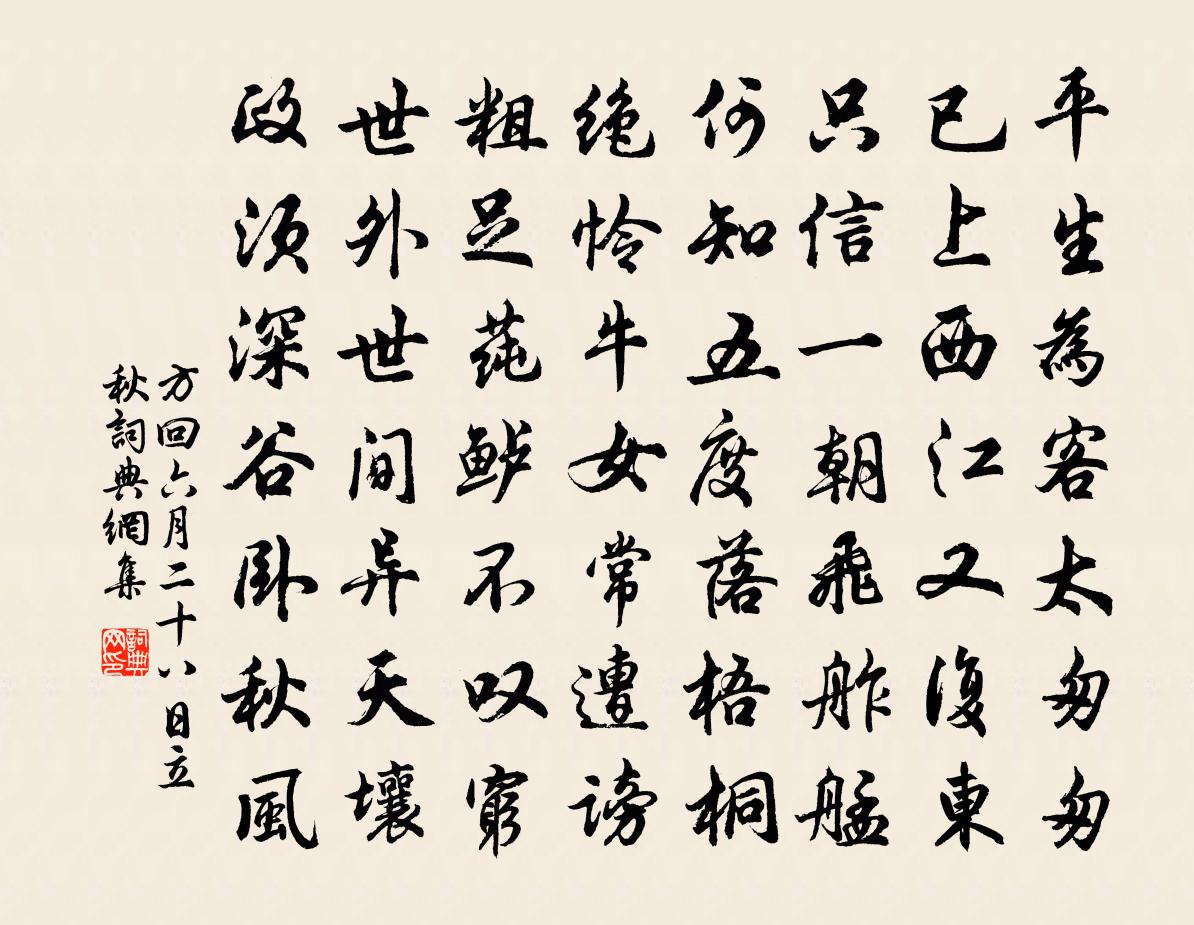 平生為客太匆匆
已上西江又復東
只信一朝飛舴艋
何知五度落梧桐
绝怜牛女常遭谤
粗足莼鲈不叹窮
世外世間异天壤
政须深谷卧秋風
方回六月二十八日立
秋詞典網集
詞典网印